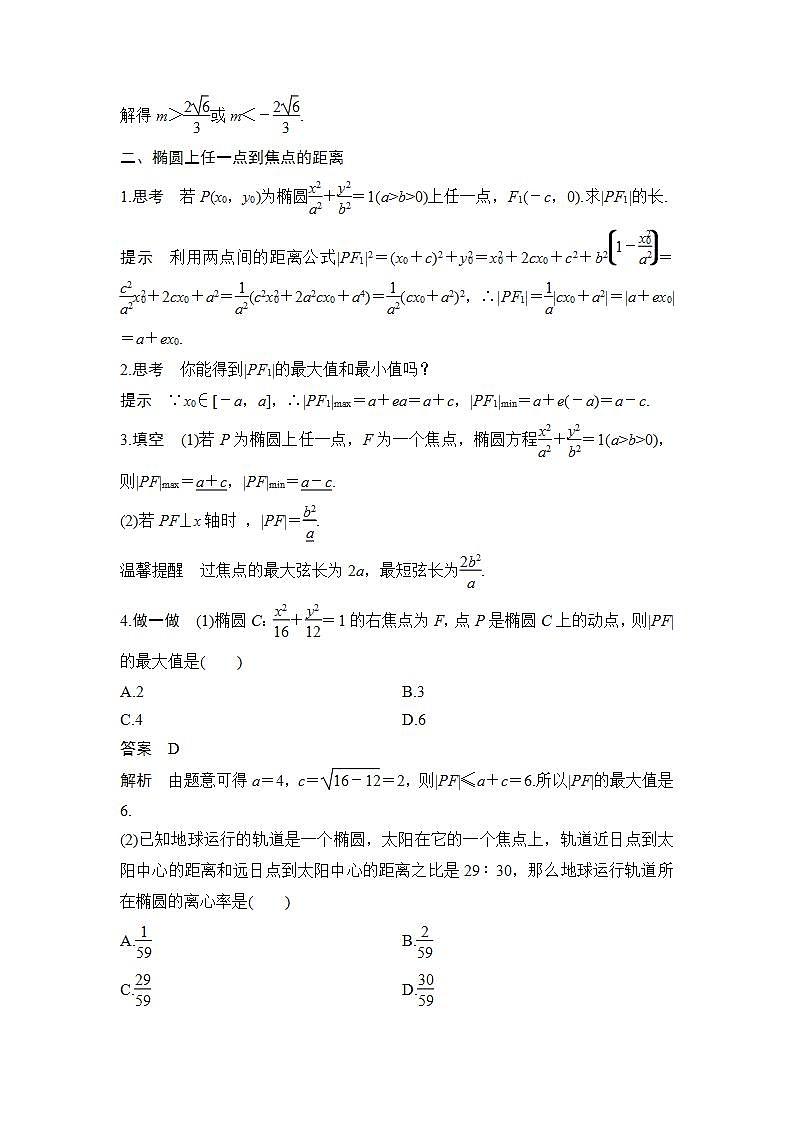 解得 m＞2√6/3或 m＜－2√6/3.
二、椭圆上任一点到焦点的距离
1.思考　若 P(x₀，y₀)为椭圆x²/a²＋y²/b²＝1(a>b>0)上任一点，F₁(－c，0).求|PF₁|的长.
提示　利用两点间的距离公式|PF₁|²＝(x₀＋c)²＋y₀²＝x₀²＋2cx₀＋c²＋b²(1－x₀²/a²)＝
c²/a²x₀²＋2cx₀＋a²＝1/a²(c²x₀²＋2a²cx₀＋a⁴)＝1/a²(cx₀＋a²)²，∴|PF₁|＝1/a|cx₀＋a²|＝|a＋ex₀|
＝a＋ex₀.
2.思考　你能得到|PF₁|的最大值和最小值吗？
提示　∵x₀∈[－a，a]，∴|PF₁|max＝a＋ea＝a＋c，|PF₁|min＝a＋e(－a)＝a－c.
3.填空　(1)若 P 为椭圆上任一点，F 为一个焦点，椭圆方程x²/a²＋y²/b²＝1(a>b>0)，
则|PF|max＝a＋c，|PF|min＝a－c.
(2)若 PF⊥x 轴时 ，|PF|＝b²/a.
温馨提醒　过焦点的最大弦长为 2a，最短弦长为2b²/a.
4.做一做　(1)椭圆 C：x²/16＋y²/12＝1 的右焦点为 F，点 P 是椭圆 C 上的动点，则|PF|
的最大值是(　　)
A.2　　B.3
C.4　　D.6
答案　D
解析　由题意可得 a＝4，c＝√(16－12)＝2，则|PF|≤a＋c＝6.所以|PF|的最大值是
6.
(2)已知地球运行的轨道是一个椭圆，太阳在它的一个焦点上，轨道近日点到太
阳中心的距离和远日点到太阳中心的距离之比是 29∶30，那么地球运行轨道所
在椭圆的离心率是(　　)
A.1/59　　B.2/59
C.29/59　　D.30/59